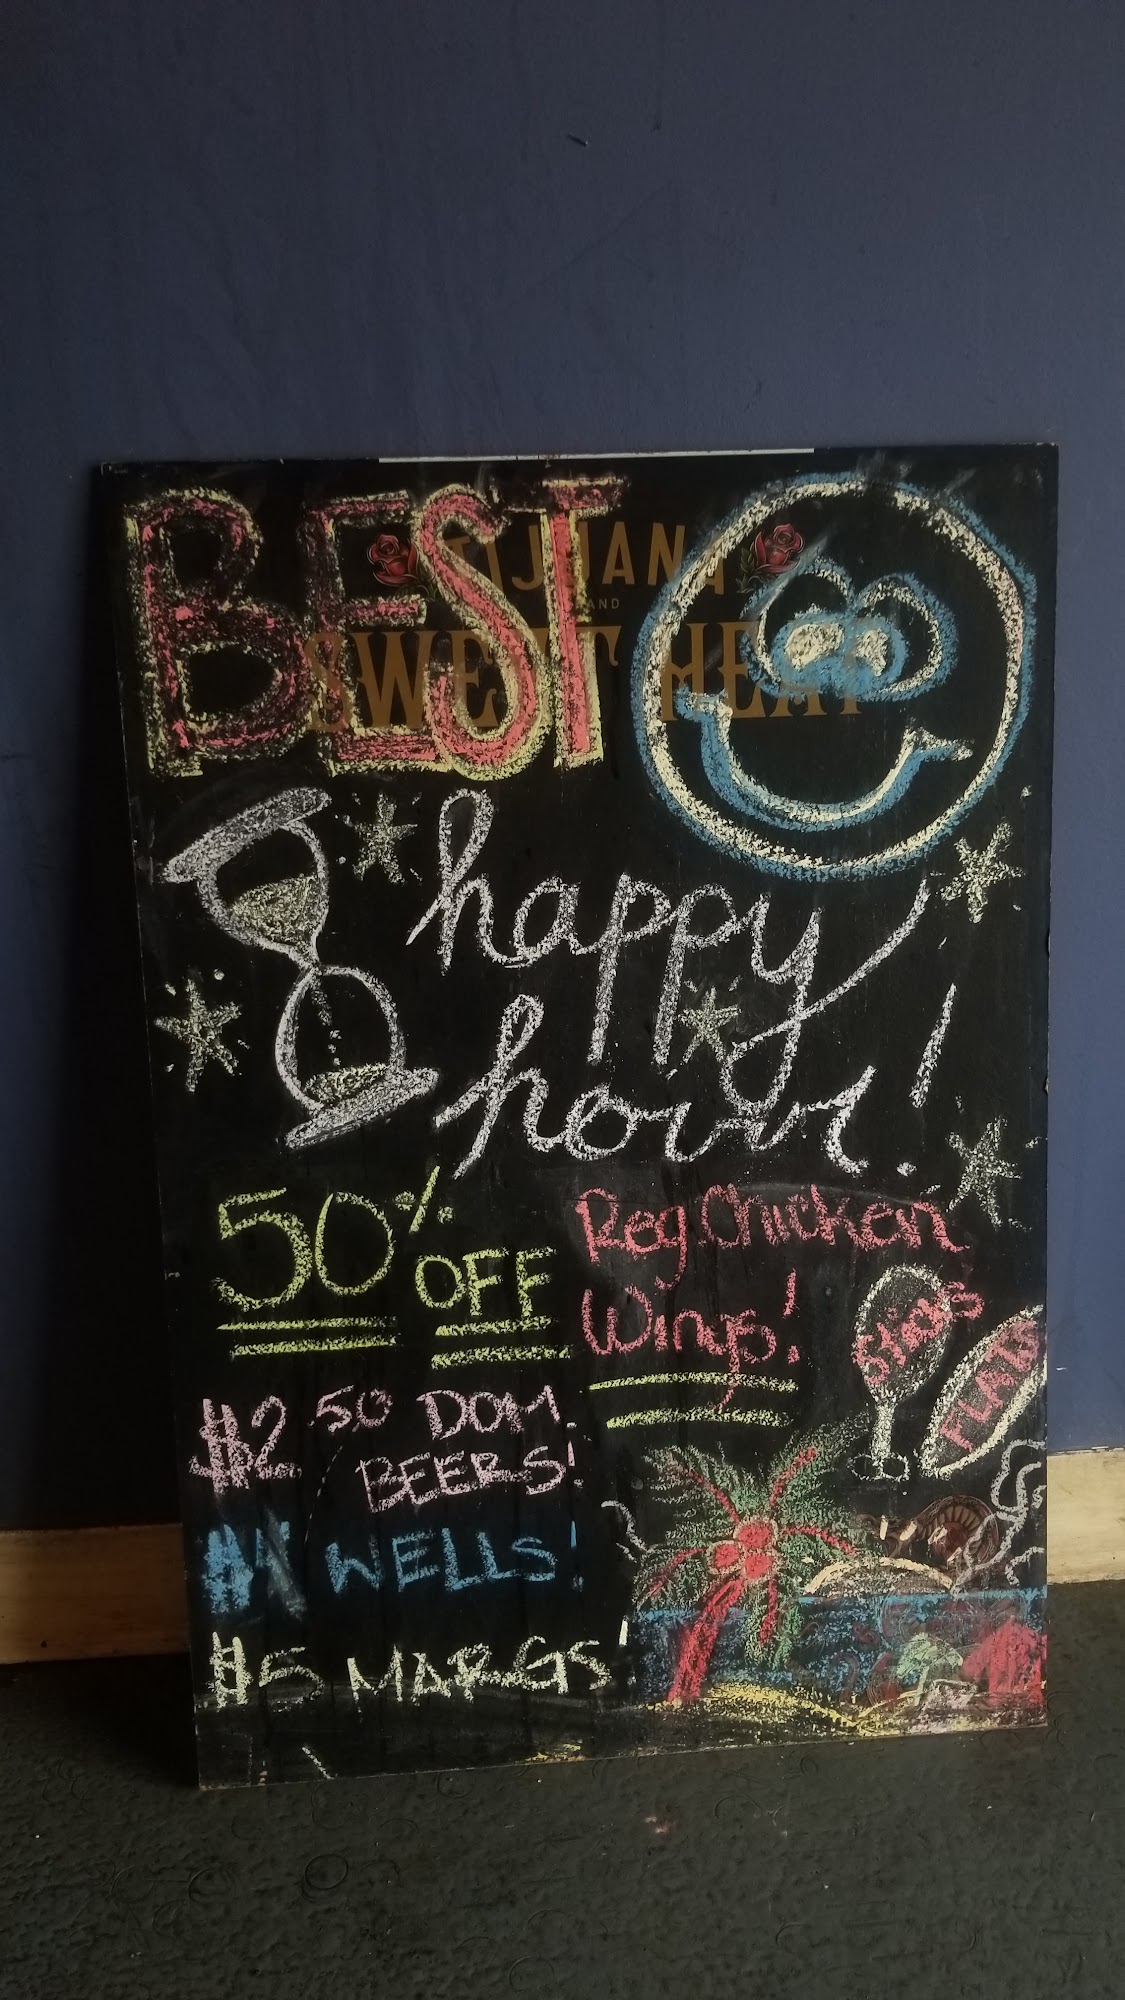 BEST
TIJUANA
AND
SWEET HEAT
happy
hour!
50% OFF
Reg Chicken
Wings!
Sticks
FLATS
$2 50 DOM.
BEERS!
WELLS!
$5 MARGS!